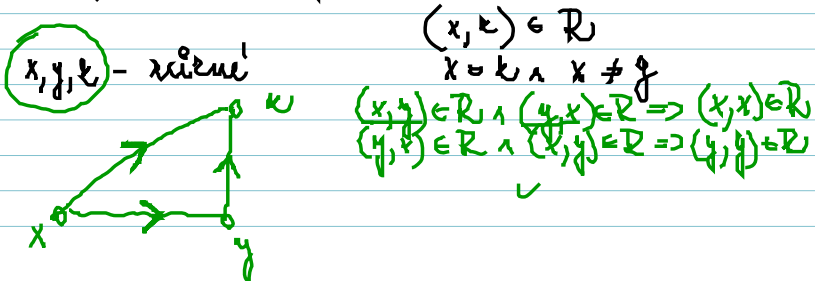 (x, z) ∈ R
x, y, z - různé
x = z ∧ x ≠ y
z
(x, y) ∈ R ∧ (y, x) ∈ R => (x, x) ∈ R
(y, x) ∈ R ∧ (x, y) ∈ R => (y, y) ∈ R
✓
x
y